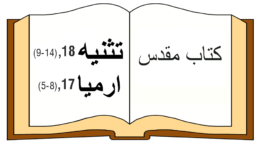 کتاب مقدس
تثنیه 18,(9-14)
ارمیا 17,(5-8)